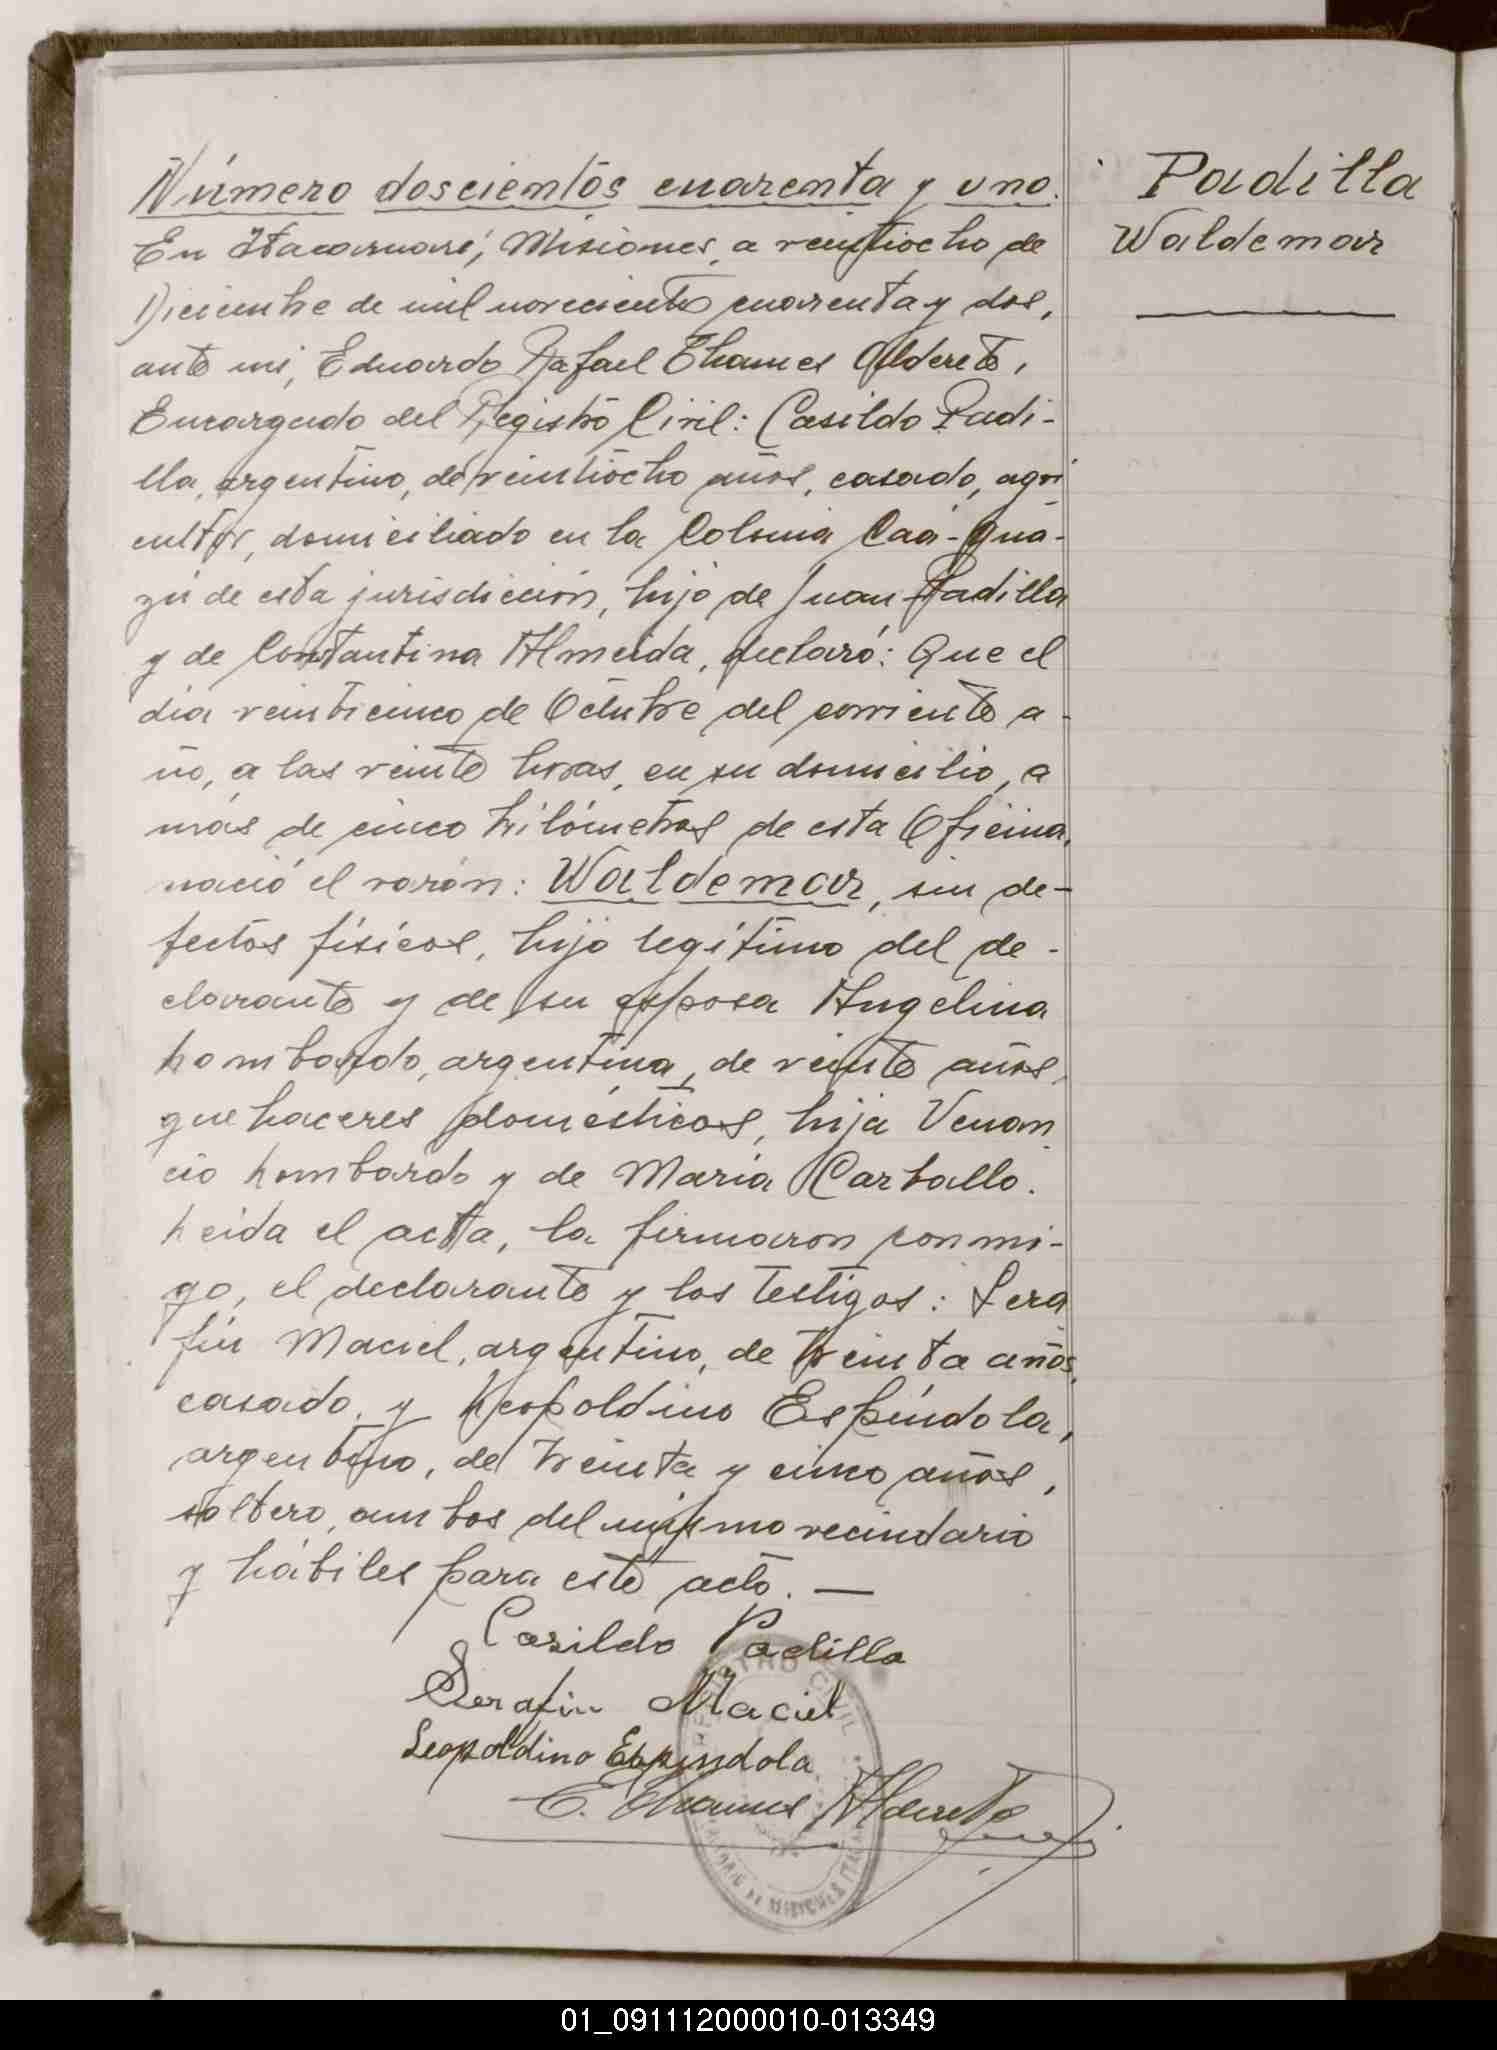 Número doscientos cuarenta y uno.
En Itacaruaré, Misiones, a veintiocho de
Diciembre de mil novecientos cuarenta y dos,
ante mi, Eduardo Rafael Thames Alderete,
Encargado del Registro Civil: Casildo Padi-
lla, argentino, de veintiocho años, casado, agri
cultor, domiciliado en la Colonia Caá-Gua-
zú de esta jurisdicción, hijo de Juan Padilla
y de Constantina Almeida, declaró: Que el
día veinticinco de Octubre del corriente a-
ño, a las veinte horas, en su domicilio, a
más de cinco kilómetros de esta Oficina,
nació el varón: Waldemar, sin de-
fectos físicos, hijo legítimo del de-
clarante y de su esposa Angelina
Lombardo, argentina, de veinte años,
quehaceres domésticos, hija Venan
cio Lombardo y de María Carballo.
Leída el acta, la firmaron conmi-
go, el declarante y los testigos: Sera
fín Maciel, argentino, de treinta años,
casado, y Leopoldino Espíndola,
argentino, de treinta y cinco años,
soltero, ambos del mismo vecindario
y hábiles para este acto. —
Casildo Padilla
Serafin Maciel
Leopoldino Espindola
E. Thames Alderete
Padilla
Waldemar
REGISTRO CIVIL
01_091112000010-013349